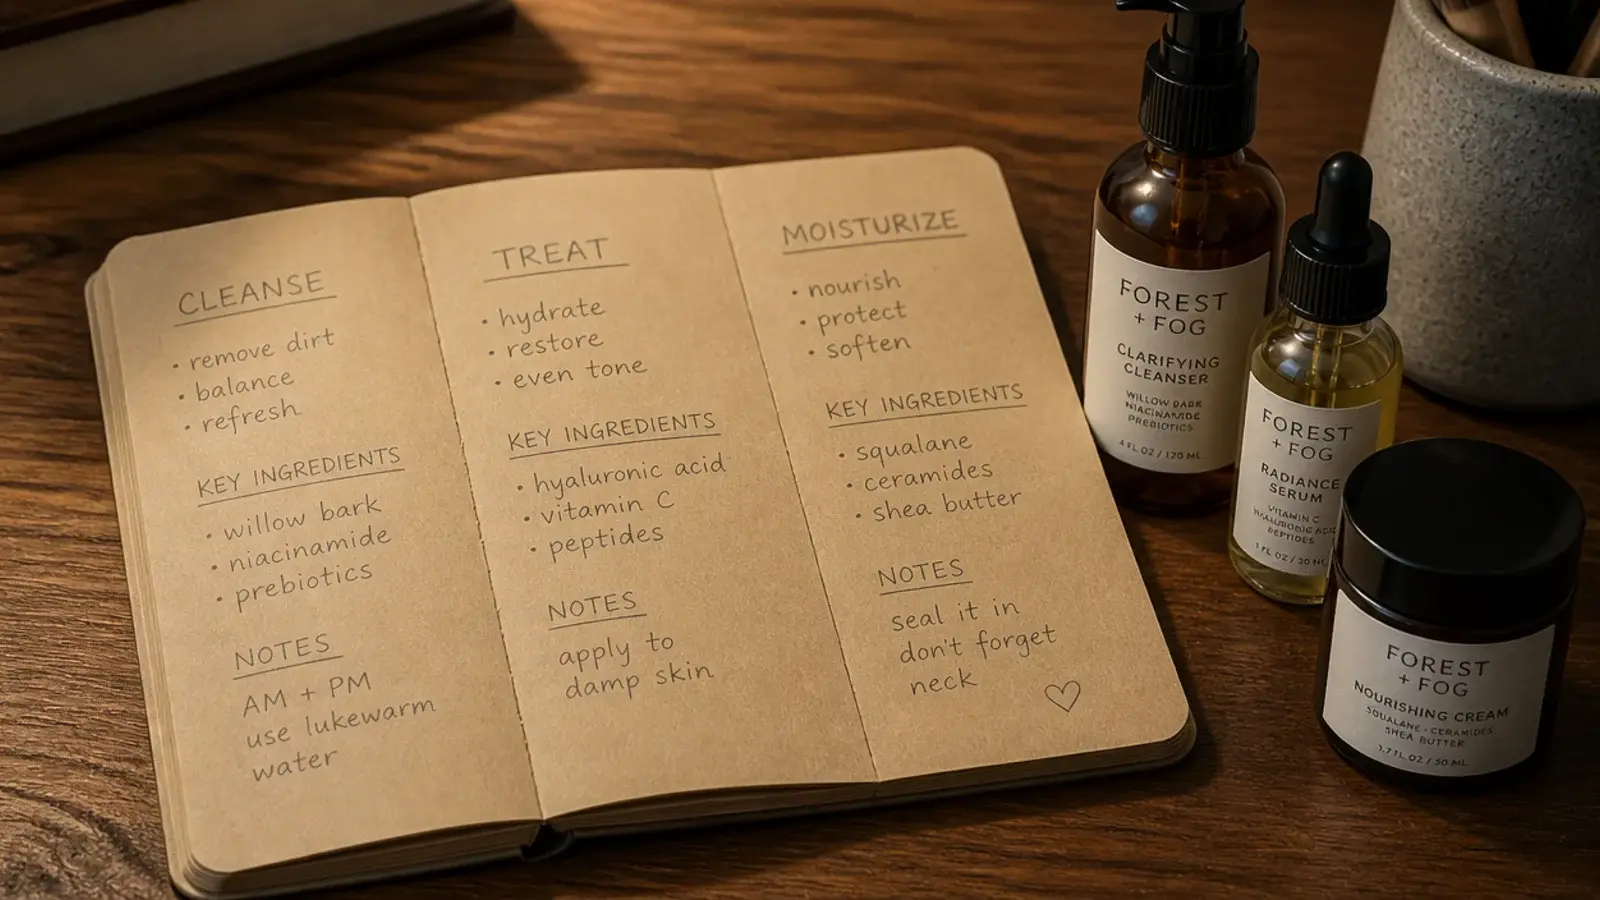 CLEANSE
• remove dirt
• balance
• refresh
KEY INGREDIENTS
• willow bark
• niacinamide
• prebiotics
NOTES
AM + PM
use lukewarm
water
TREAT
• hydrate
• restore
• even tone
KEY INGREDIENTS
• hyaluronic acid
• vitamin C
• peptides
NOTES
apply to
damp skin
MOISTURIZE
• nourish
• protect
• soften
KEY INGREDIENTS
• squalane
• ceramides
• shea butter
NOTES
seal it in
don't forget
neck
FOREST
+ FOG
CLARIFYING
CLEANSER
WILLOW BARK
NIACINAMIDE
PREBIOTICS
4 FL OZ / 120 ML
FOREST
+ FOG
RADIANCE
SERUM
VITAMIN C
HYALURONIC ACID
PEPTIDES
1 FL OZ / 30 ML
FOREST
+ FOG
NOURISHING CREAM
SQUALANE · CERAMIDES
SHEA BUTTER
1.7 FL OZ / 50 ML